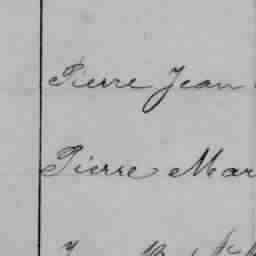 Pierre Jean
Pierre Mar